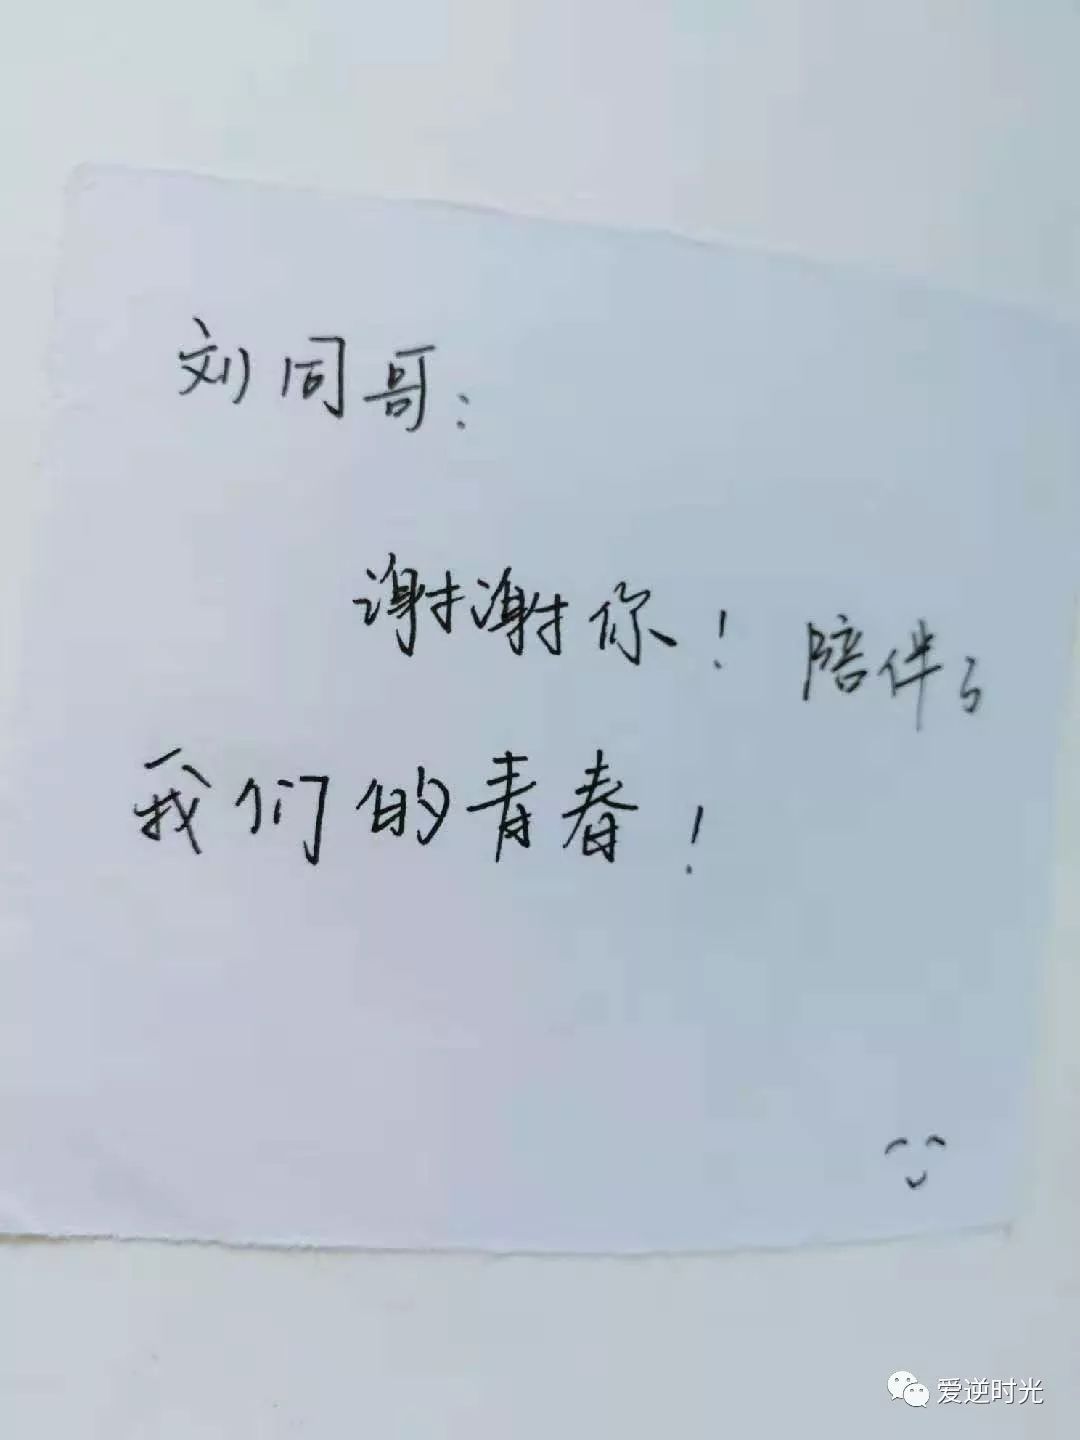 刘同哥：
谢谢你！陪伴了
我们的青春！
爱逆时光